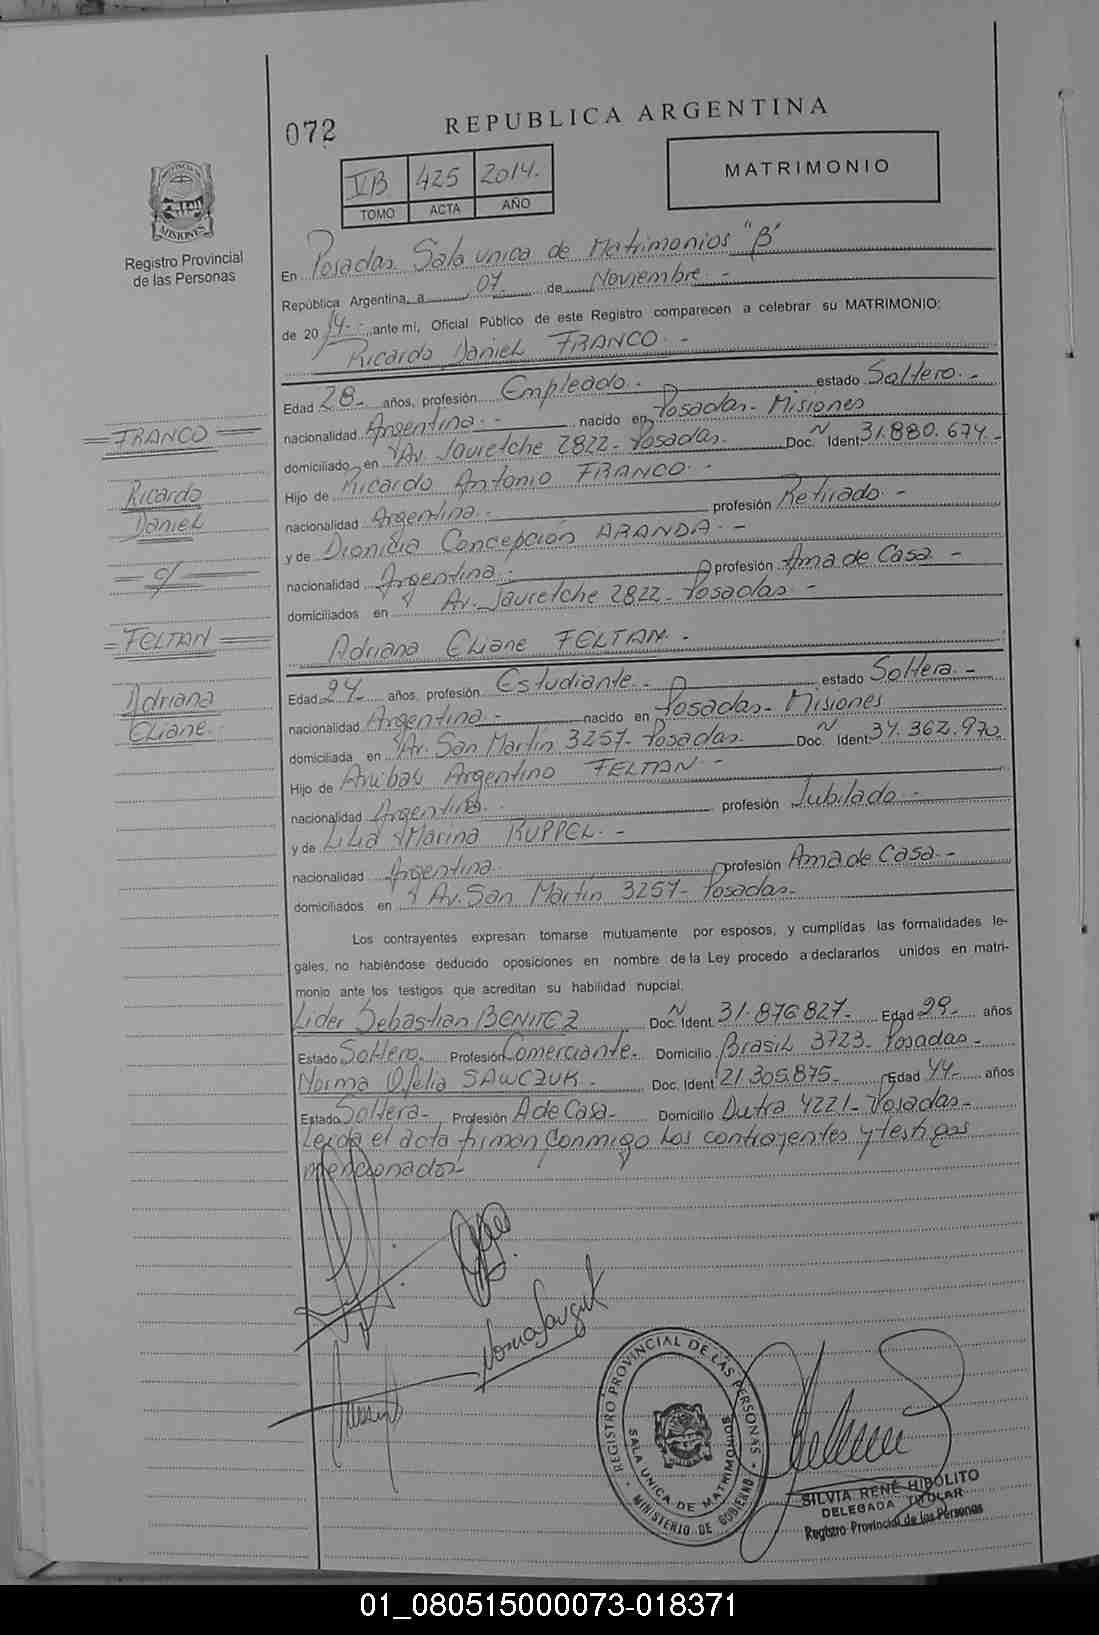 072
REPUBLICA ARGENTINA
MATRIMONIO
VB 425 2014.-
TOMO ACTA AÑO
Registro Provincial
de las Personas
En Posadas Sala unica de Matrimonios "B"
República Argentina, a 07 de Noviembre -
de 2014.- ante mi, Oficial Público de este Registro comparecen a celebrar su MATRIMONIO:
Ricardo Daniel FRANCO.-
Edad 28- años, profesión Empleado.- estado Soltero.-
nacionalidad Argentina.- nacido en Posadas- Misiones
domiciliado en Av. Jauretche 2822- Posadas. Doc. Ident. N 31.880.674.-
Hijo de Ricardo Antonio FRANCO.-
nacionalidad Argentina.- profesión Retirado.-
y de Dionicia Concepción ARANDA.-
nacionalidad Argentina.- profesión Ama de Casa -
domiciliados en Av. Jauretche 2822- Posadas.-
= FRANCO =
Ricardo
Daniel
= c/ =
= FELTAN =
Adriana
Eliane.
Adriana Eliane FELTAN.-
Edad 24- años, profesión Estudiante.- estado Soltera.-
nacionalidad Argentina.- nacido en Posadas- Misiones
domiciliada en Av. San Martin 3257- Posadas. Doc. Ident. N 34.362.970
Hijo de Anibal Argentino FELTAN.-
nacionalidad Argentina. profesión Jubilado.-
y de Lilia Marina RUPPEL.-
nacionalidad Argentina. profesión Ama de Casa.-
domiciliados en Av. San Martin 3257- Posadas-
Los contrayentes expresan tomarse mutuamente por esposos, y cumplidas las formalidades le-
gales, no habiéndose deducido oposiciones en nombre de la Ley procedo a declararlos unidos en matri-
monio ante los testigos que acreditan su habilidad nupcial.
Lider Sebastian BENITEZ Doc. Ident. N 31.876.827- Edad 29- años
Estado Soltero. Profesión Comerciante. Domicilio Brasil 3723- Posadas-
Norma Ofelia SAWCZUK- Doc. Ident 21.305.875- Edad 44- años
Estado Soltera- Profesión A de Casa- Domicilio Dutra 4221- Posadas-
Leida el acta firman conmigo los contrayentes y testigos
mencionados-
REGISTRO PROVINCIAL DE LAS PERSONAS
SALA UNICA DE MATRIMONIOS
MINISTERIO DE GOBIERNO
SILVIA RENÉ HIPÓLITO
DELEGADA TITULAR
Registro Provincial de las Personas
01_080515000073-018371